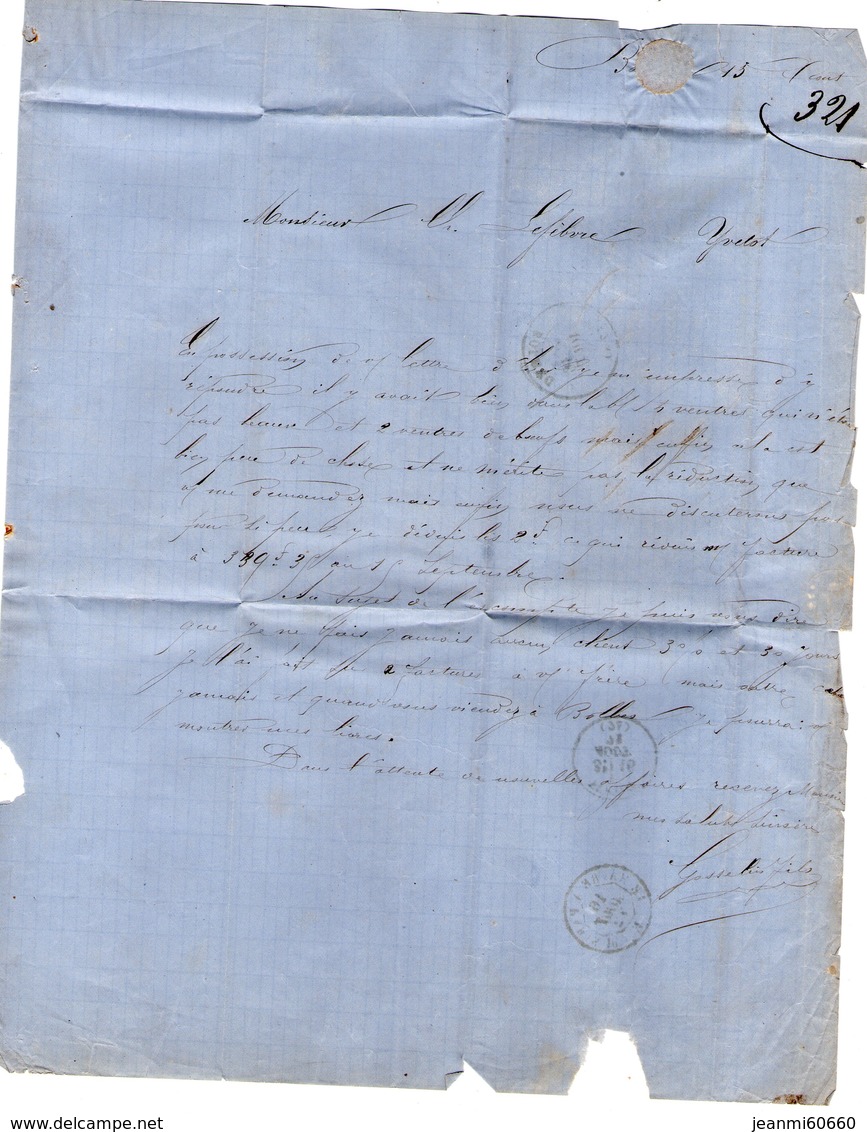 B 15
321
Monsieur Lefibvre Yvetot
En possession de v/ lettre d'hier je m'empresse d'y
répondre il y avait bien dans table 4 ventres qui n'ét
pas et 2 ventres de boeufs mais enfin cela est
bien peu de chose et ne mérite pas la réduction que
v/ me demandez mais enfin nous ne discuterons pas
pour si peu, je déduis les 2f ce qui réduis m/ facture
à 339f 3 au 15 Septembre.
Au sujet de l'escompte je puis vous dire
que je ne fais jamais aucun client 3% et 30 jours
je l'ai fait sur 2 factures à v/ frère mais outre cela
jamais et quand vous viendrez à Bolbec je pourrai v/
montrer mes livres.
Dans l'attente de nouvelles affaires recevez Monsieur
mes saluts sincères
Gosselin fils
AOUT
jeanmi60660